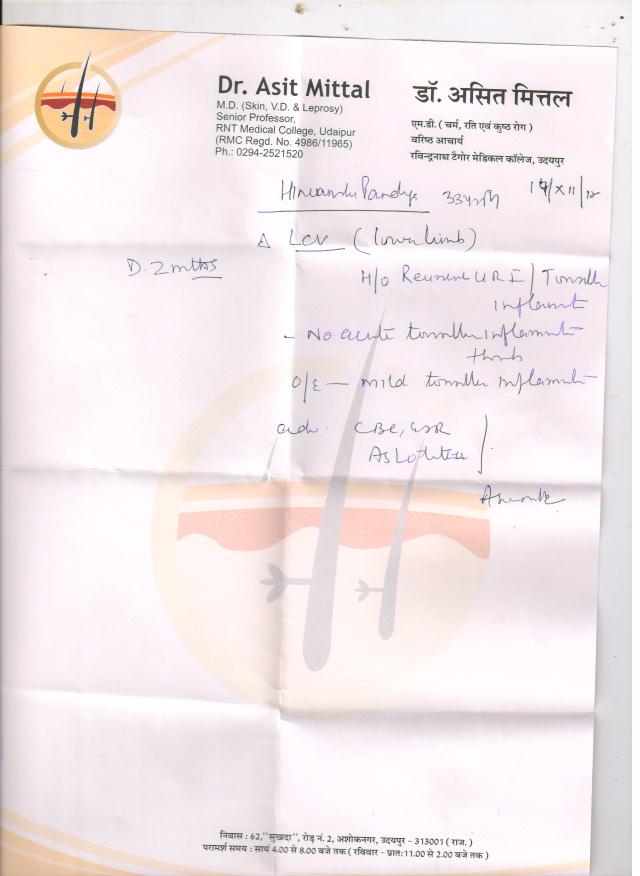 Dr. Asit Mittal
M.D. (Skin, V.D. & Leprosy)
Senior Professor,
RNT Medical College, Udaipur
(RMC Regd. No. 4986/11965)
Ph.: 0294-2521520
डॉ. असित मित्तल
एम.डी. ( चर्म, रति एवं कुष्ठ रोग )
वरिष्ठ आचार्य
रविन्द्रनाथ टैगोर मेडिकल कॉलेज, उदयपुर
Δ LCV (lower limb)
D. 2 mths
H/o Recurrent URI / Tonsillr
inflamt
- No acute tonsillr inflammt
O/E — mild tonsillr inflammt
adv. CBC, ESR
ASLO titre
निवास : 62,"सुखदा", रोड़ नं. 2, अशोकनगर, उदयपुर - 313001 ( राज. )
परामर्श समय : सायं 4.00 से 8.00 बजे तक ( रविवार - प्रातः11.00 से 2.00 बजे तक )